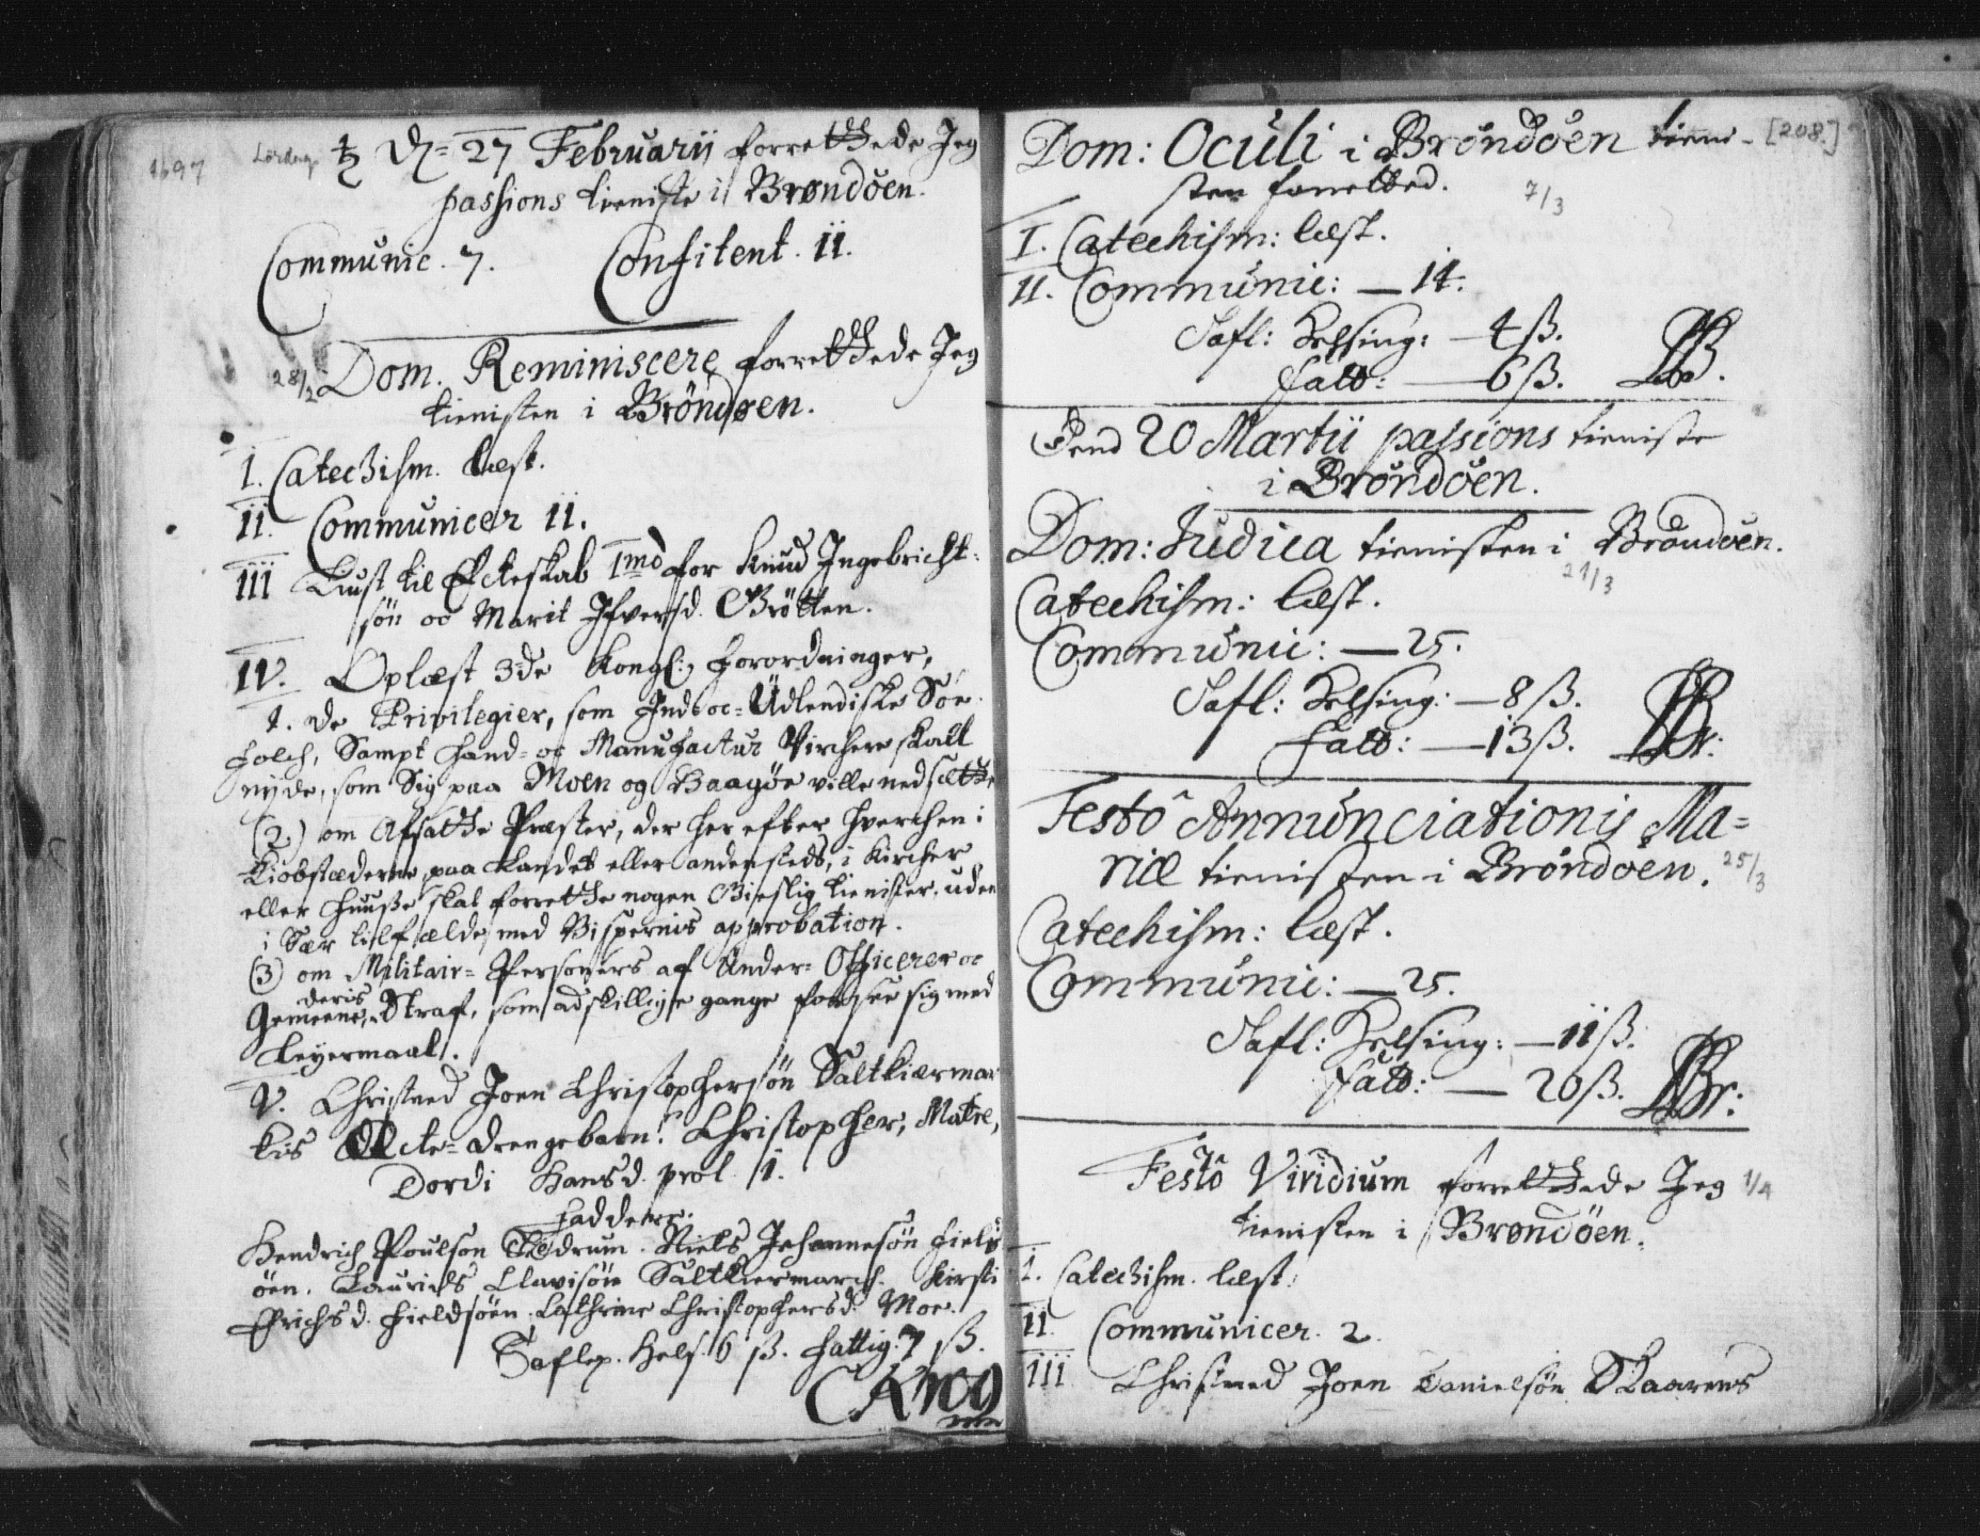 1697 Lørdag ♄ D. 27 Februarii forrettede Jeg
passions tieniste i Brøndöen.
Communic. 7. Confitent. 11.
28/2 Dom. Reminiscere forrettede Jeg
tienisten i Bröndøen.
I. Catechism. læst.
II. Communicer 11.
III Liust til Ecteskab 1mo for Knud Ingebricht-
sön oc Marit Ifversd. Grötten.
IV. Oplæst 3de Kongl. forordninger,
1. de Privilegier, som Ind- oc Udlendiske Söe-
folch, Sampt Hand- og Manufactur Virchere skall
nyde, som Sig paa Moen og Baagöe ville nedsætte
(2.) om Afsatte Præster, der her efter hverchen i
Kiøbstæderne, paa Landet eller andensteds, i Kircher
eller Huuse skal forrette nogen Gieslig tienister, uden
i Sær tilfælde med Bispernis approbation.
(3) om Militair- Personers af Under- Officerer oc
Gemeene, deris Straf, som adskillige gange forseer sig med
Leyermaal.
V. Christned Joen Christophersön Saltkiermar
kis Ecte- drengebarn: Christopher, Matre,
Dordi Hansd. prol. 1.
Fadderne:
Hendrich Poulsøn Tedrum. Niels Johannesön Fields
öen. Laurids Clavisön Saltkiermarch. Kirsti
Erichsd. Fieldsöen. Cathrine Christophersd. Moe.
Taflep. Hels. 6 ß. fattig. 7 ß.
CKrog
Dom: Oculi i Bröndöen tieni- [208.]
sten forretted. 7/3
I. Catechism: læst.
II. Communic: — 14.
Tafl: Helsing: — 4 ß.
Fatt: — 6 ß.
Dend 20 Martii passions tieniste
i Bröndöen.
Dom: Judica tienisten i Bröndöen.
21/3
Catechism: læst.
Communic: — 25.
Tafl: Helsing: — 8 ß.
Fatt: — 13 ß.
Festo Annunciationis Ma=
riæ tienisten i Bröndöen. 25/3
Catechism: læst.
Communic: — 25.
Tafl: Helsing: — 11 ß.
Fatt: — 20 ß.
Festô Viridium forrettede Jeg 1/4
tienisten i Brøndöen.
I. Catechism. læst.
II. Communicer. 2.
III Christned Joen Danielsön Skaarens